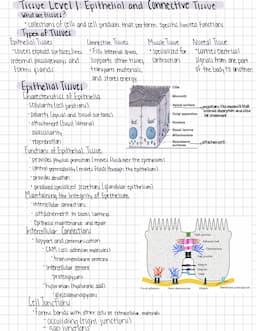 Tissue Level 1: Epithelial and Connective Tissue
What are tissues?
• collections of cells and cell products that perform specific, limited functions
Types of Tissues
Epithelial Tissues
• covers exposed surfaces, lines
internal passageways and
forms glands
Connective Tissues
• Fills internal spaces,
supports other tissues,
transports materials,
and stores energy
Muscle Tissue
• specialized for
contraction
Neural Tissue
• carries electrical
signals from one part
of the body to another
Epithelial Tissues
Characteristics of Epithelia
• cellularity (cell junctions)
• polarity (apical and basal surfaces)
• attachment (basal lamina)
• avascularity
• regeneration
Cilia
Microvilli
Apical surface
Golgi apparatus
Nucleus
Basal lamina
Mitochondria
Basolateral surfaces
Functions of Epithelial Tissue
• provides physical protection
• control permeability
• provides sensation
• produces specialized secretions (glandular epithelium)
Maintaining the Integrity of Epithelia
• intercellular connections
• attachment to basal lamina
• epithelial maintenance and repair
Intercellular Connections
• support and communication
• CAM (cell adhesion molecules)
• transmembrane proteins
• intercellular cement
• proteoglycans
• hyaluronan (hyaluronic acid)
• glycosaminoglycans
Cell Junctions
• forms bonds with other cells or extracellular materials
• occluding (tight) junctions
• gap junctions